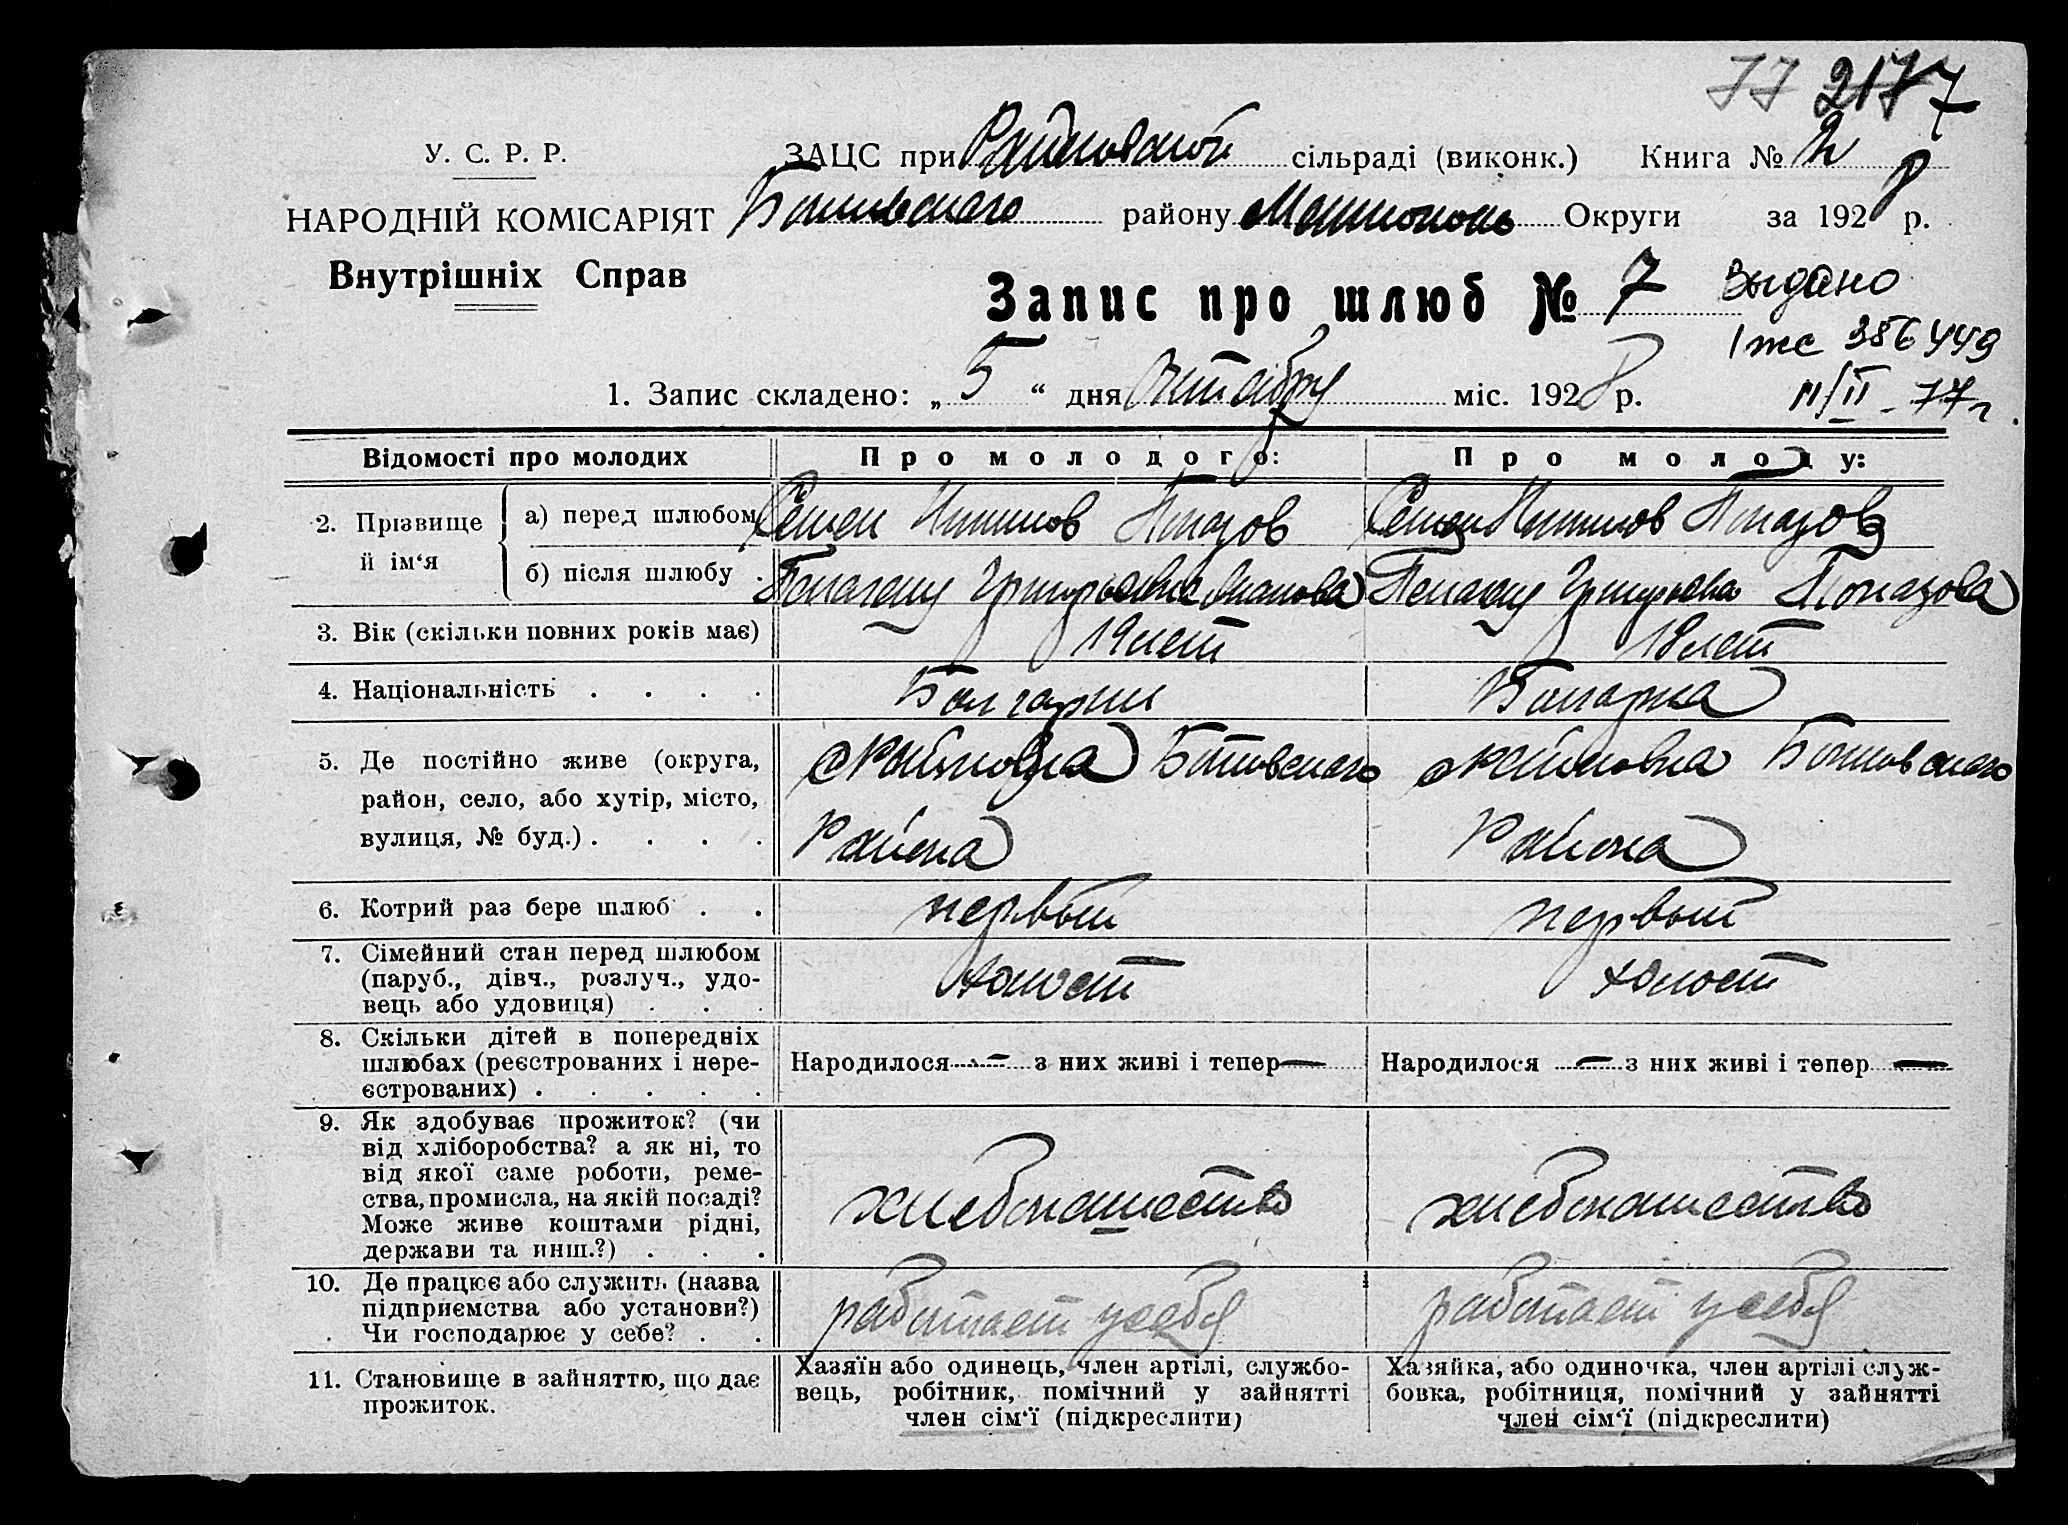 77 217 7
У. С. Р. Р. ЗАЦС при Райновской сільраді (виконк.) Книга № 2
НАРОДНІЙ КОМІСАРІЯТ Ботиевского району Округи за 1928 р.
Внутрішніх Справ
Запис про шлюб № 7 Выдано
I жс 386449
11/II-77г.
1. Запис складено: „ 5 “ дня Октября міс. 1928 р.
Відомості про молодих Про молодого: Про молоду:
2. Прізвище й ім‘я
а) перед шлюбом Семен Топазов Семен Топазов
б) після шлюбу . Пелагею Григорьевна Пелагею Григорьевна Топазова
3. Вік (скільки повних років має) 19 лет 18 лет
4. Національність . . . . Болгарин Болгарка
5. Де постійно живе (округа, с Райновка Ботиевского с Райновка Ботиевского
район, село, або хутір, місто,
вулиця, № буд.) . . . . Района Района
6. Котрий раз бере шлюб . . первый первый
7. Сімейний стан перед шлюбом
(паруб., дівч., розлуч., удо- холост холост
вець або удовиця) . . .
8. Скільки дітей в попередніх
шлюбах (реєстрованих і нере- Народилося — з них живі і тепер — Народилося — з них живі і тепер —
єстрованих) . . . . .
9. Як здобуває прожиток? (чи
від хліборобства? а як ні, то
від якої саме роботи, реме-
ства, промисла, на якій посаді? хлебопашество хлебопашество
Може живе коштами рідні,
держави та инш.?) . . .
10. Де працює або служить (назва
підприємства або установи?) работает у себя работает у себя
Чи господарює у себе? . .
11. Становище в зайняттю, що дає
прожиток.
Хазяїн або одинець, член артілі, службо-
вець, робітник, помічний у зайнятті
член сім‘ї (підкреслити)
Хазяйка, або одиночка, член артілі служ-
бовка, робітниця, помічний у зайнятті
член сім‘ї (підкреслити)